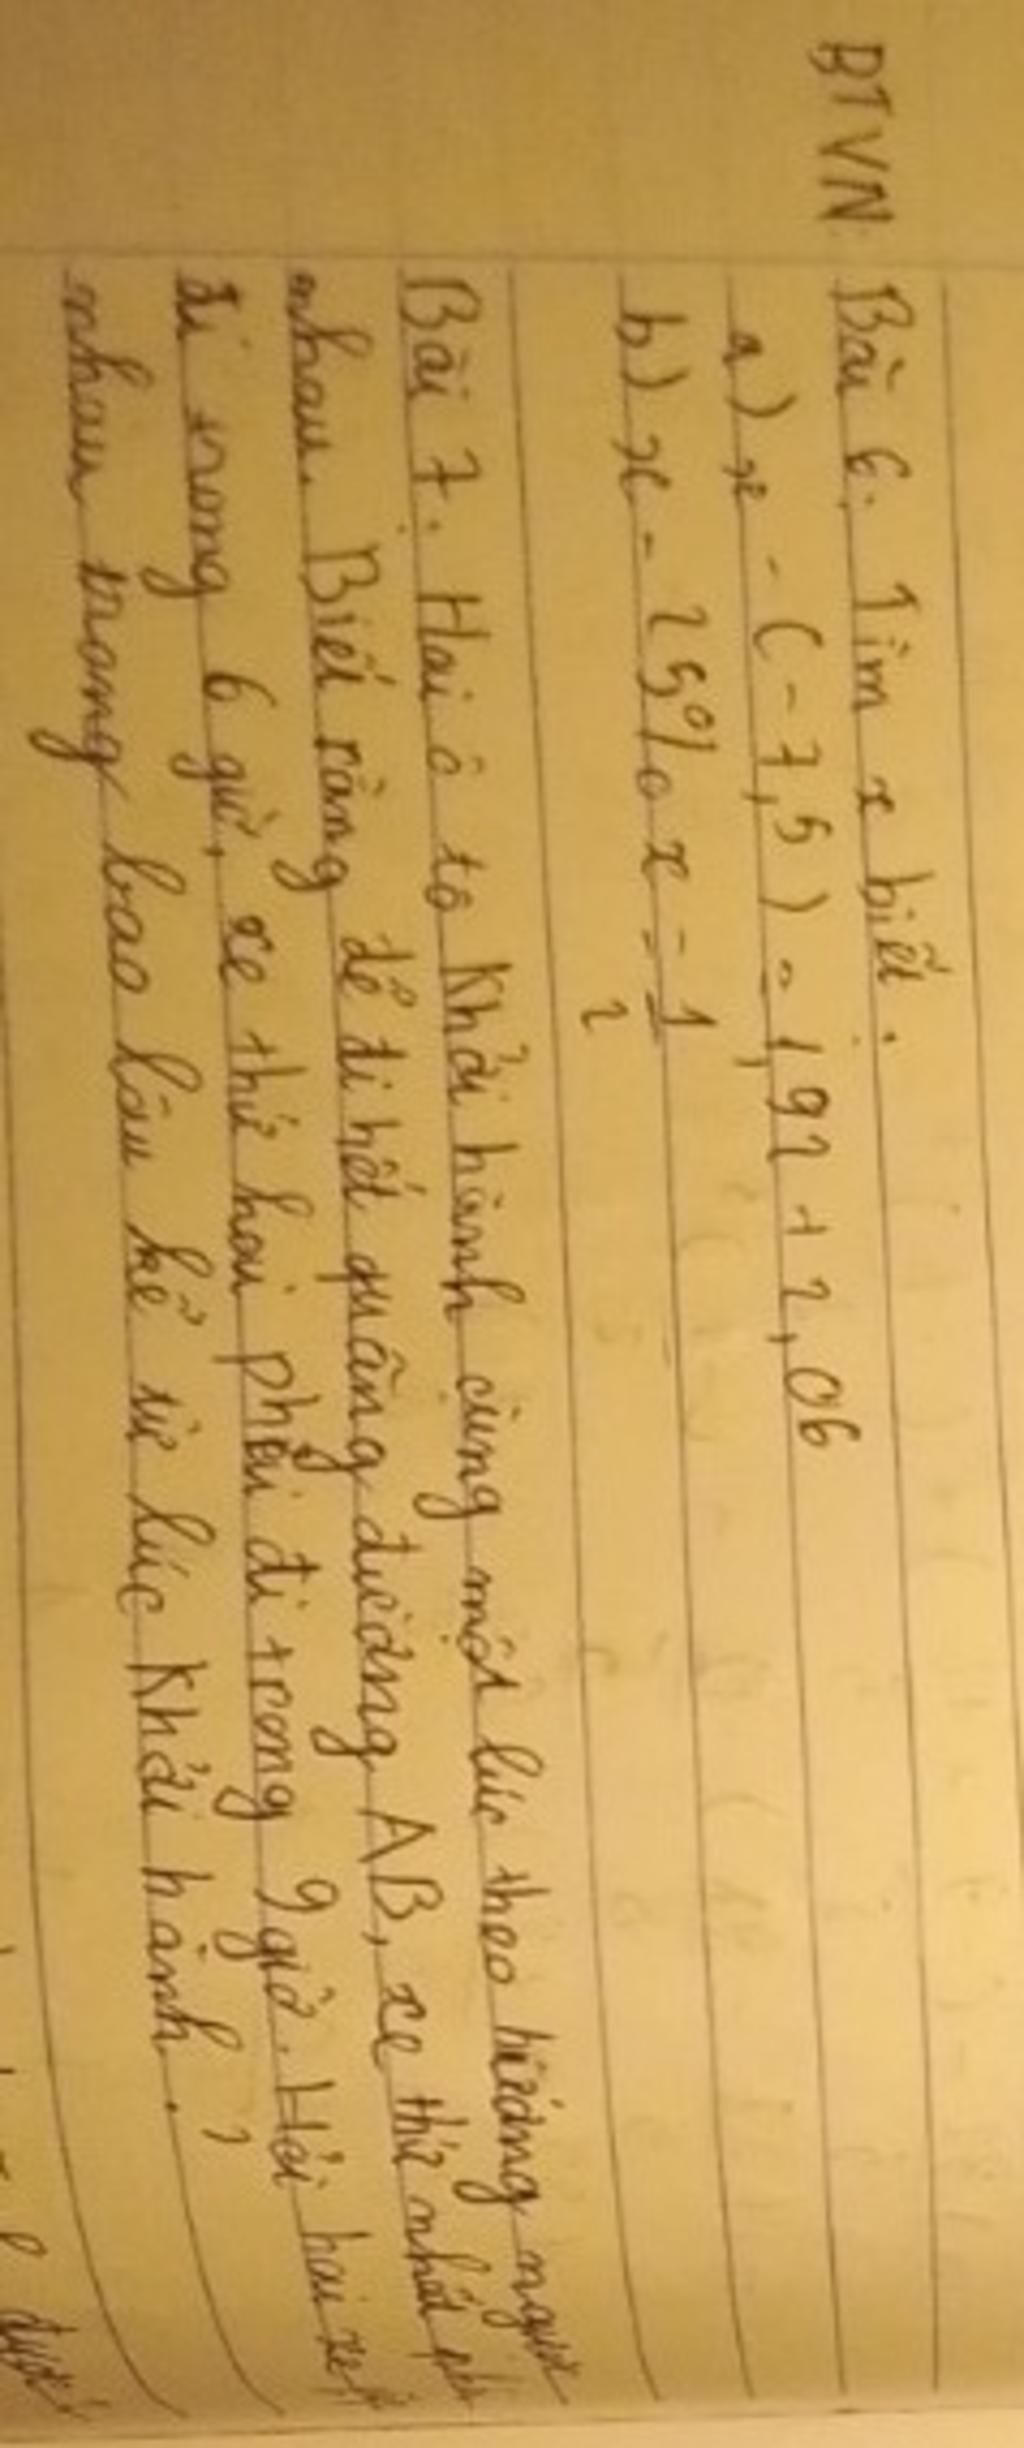 BTVN: Bài 6. Tìm x biết.
a) x - (-7,5) = 1,92 + 2,06
b) x - 25% x = 1/2
Bài 7. Hai ô tô khởi hành cùng một lúc theo hướng ngược
nhau. Biết rằng để đi hết quãng đường AB, xe thứ nhất phải
đi trong 6 giờ, xe thứ hai phải đi trong 9 giờ. Hỏi hai xe
nhau trong bao lâu kể từ lúc khởi hành. ?
được